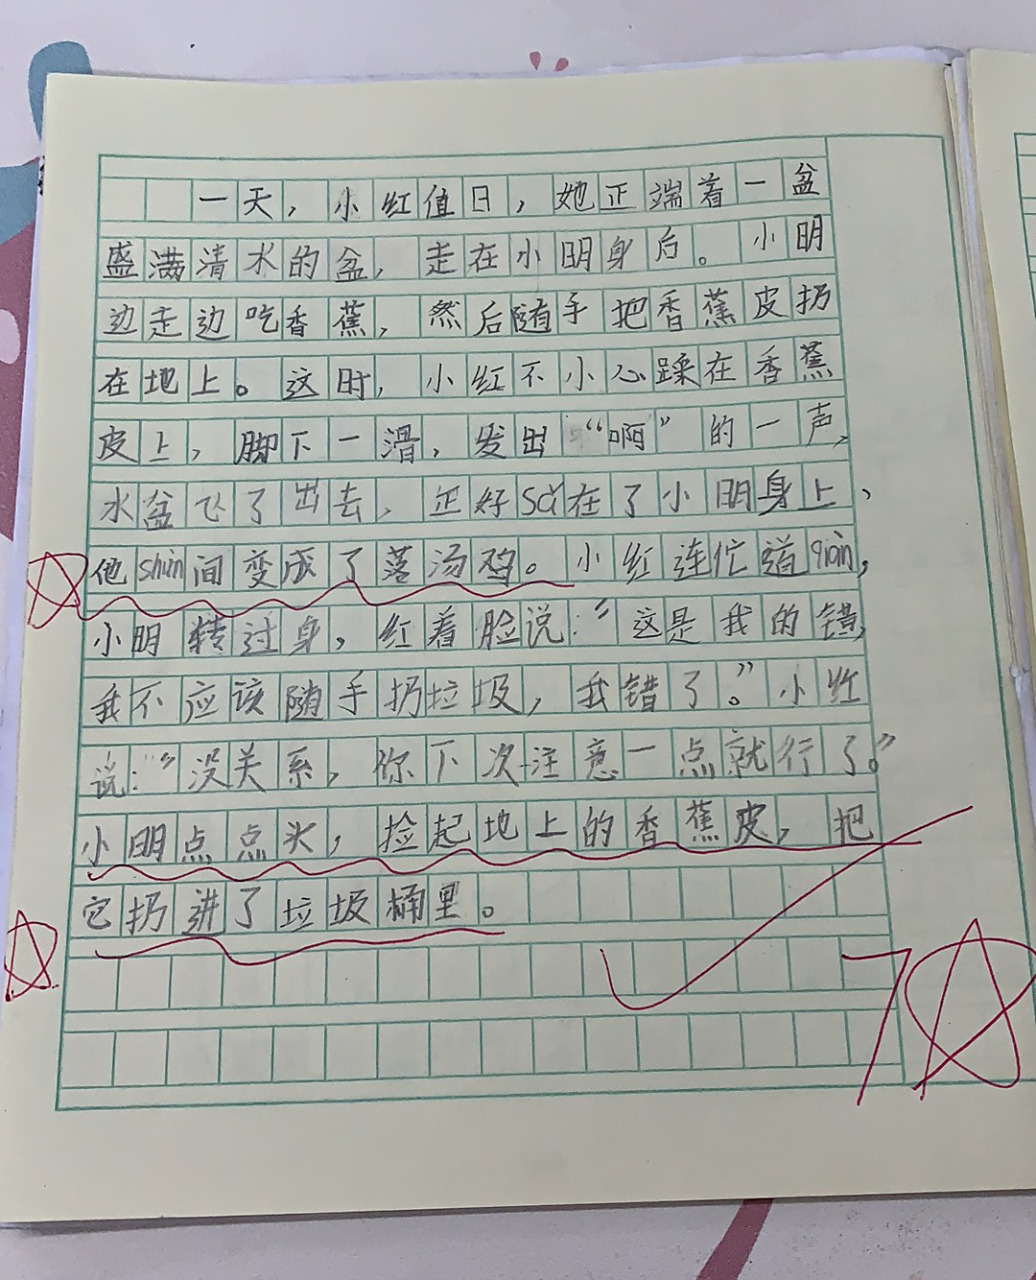 一天，小红值日，她正端着一盆
盛满清水的盆，走在小明身后。小明
边走边吃香蕉，然后随手把香蕉皮扔
在地上。这时，小红不小心踩在香蕉
皮上，脚下一滑，发出“啊”的一声，
水盆飞了出去，正好sǎ在了小明身上，
他shùn间变成了落汤鸡。小红连忙道qiàn，
小明转过身，红着脸说：“这是我的错，
我不应该随手扔垃圾，我错了。”小红
说：“没关系，你下次注意一点就行了。”
小明点点头，捡起地上的香蕉皮，把
它扔进了垃圾桶里。
7